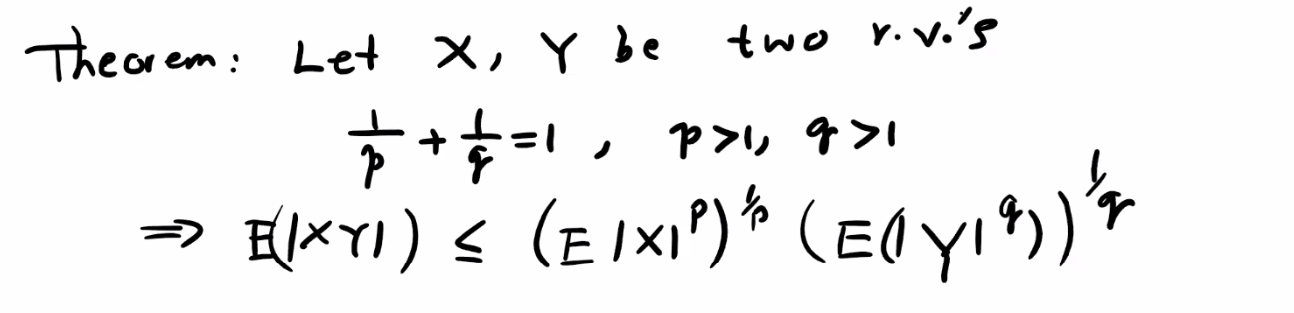 Theorem: Let X, Y be two r.v.'s
1/p + 1/q = 1 , p>1, q>1
⇒ E(|XY|) ≤ (E|X|^p)^1/p (E(|Y|^q))^1/q